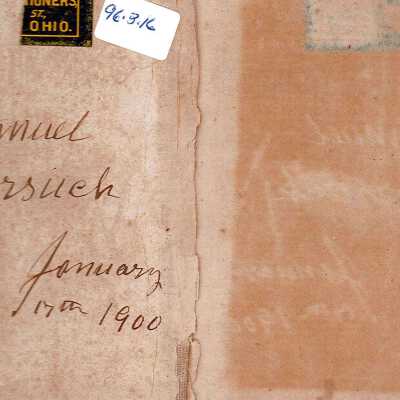 IONERS,
ST.,
OHIO.
96.3.16
muel
rsuch
January
17th 1900